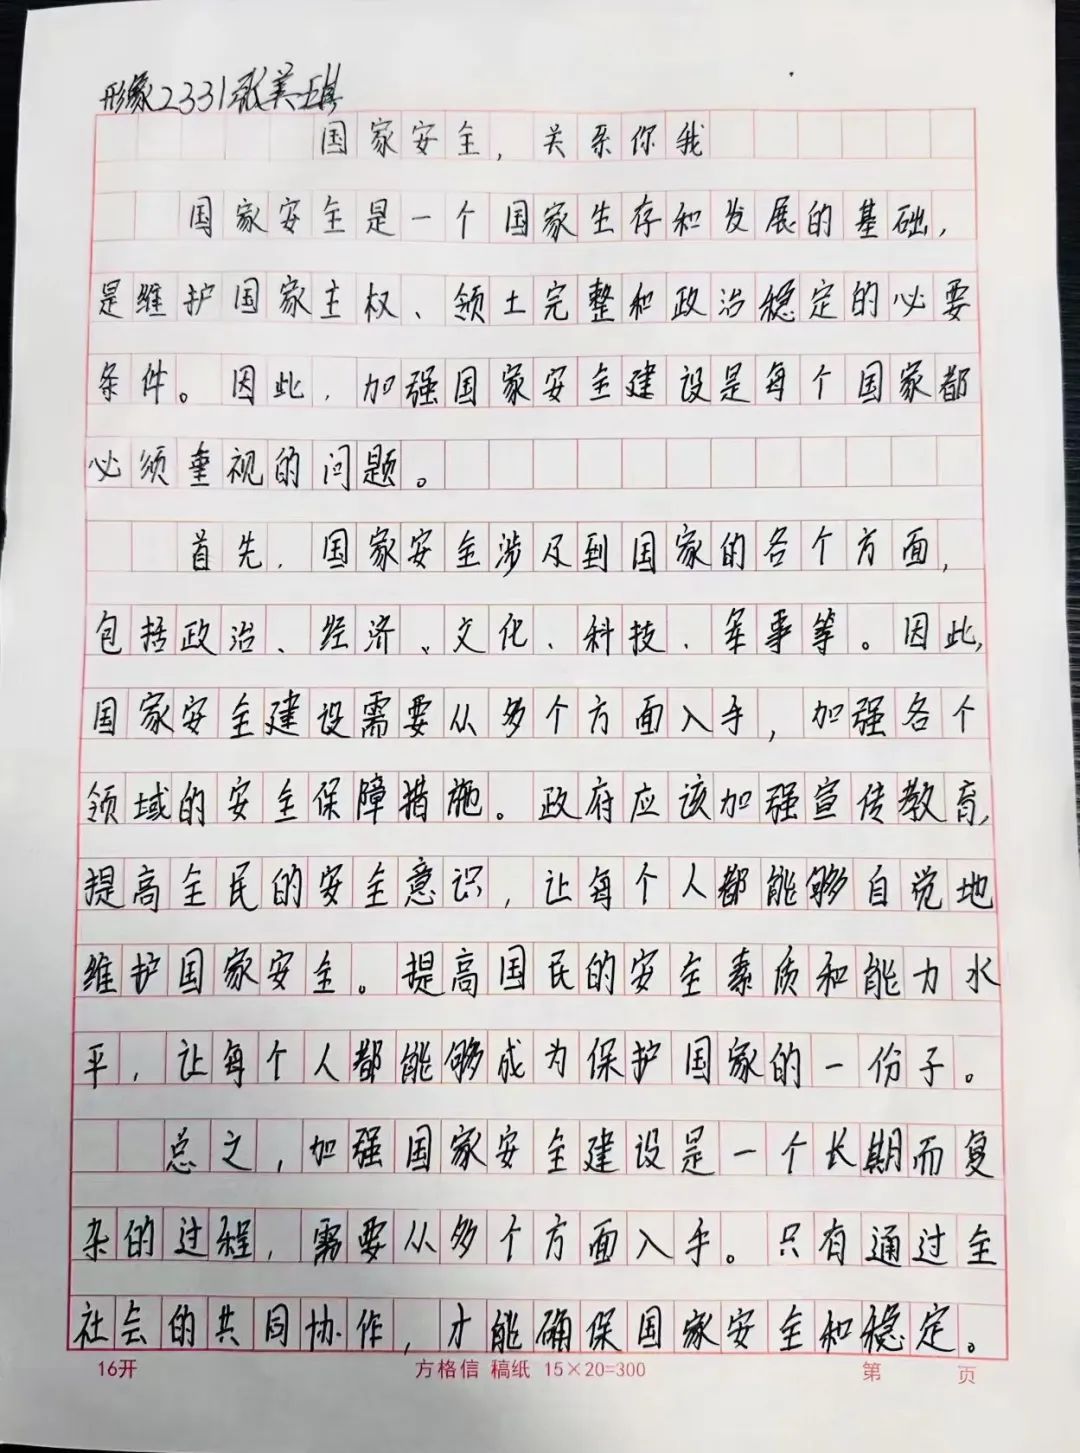 形象2331张美琪
国家安全，关系你我
国家安全是一个国家生存和发展的基础，
是维护国家主权、领土完整和政治稳定的必要
条件。因此，加强国家安全建设是每个国家都
必须重视的问题。
首先，国家安全涉及到国家的各个方面，
包括政治、经济、文化、科技、军事等。因此，
国家安全建设需要从多个方面入手，加强各个
领域的安全保障措施。政府应该加强宣传教育，
提高全民的安全意识，让每个人都能够自觉地
维护国家安全。提高国民的安全素质和能力水
平，让每个人都能够成为保护国家的一份子。
总之，加强国家安全建设是一个长期而复
杂的过程，需要从多个方面入手。只有通过全
社会的共同协作，才能确保国家安全和稳定。
16开 方格信 稿纸 15×20=300 第 页